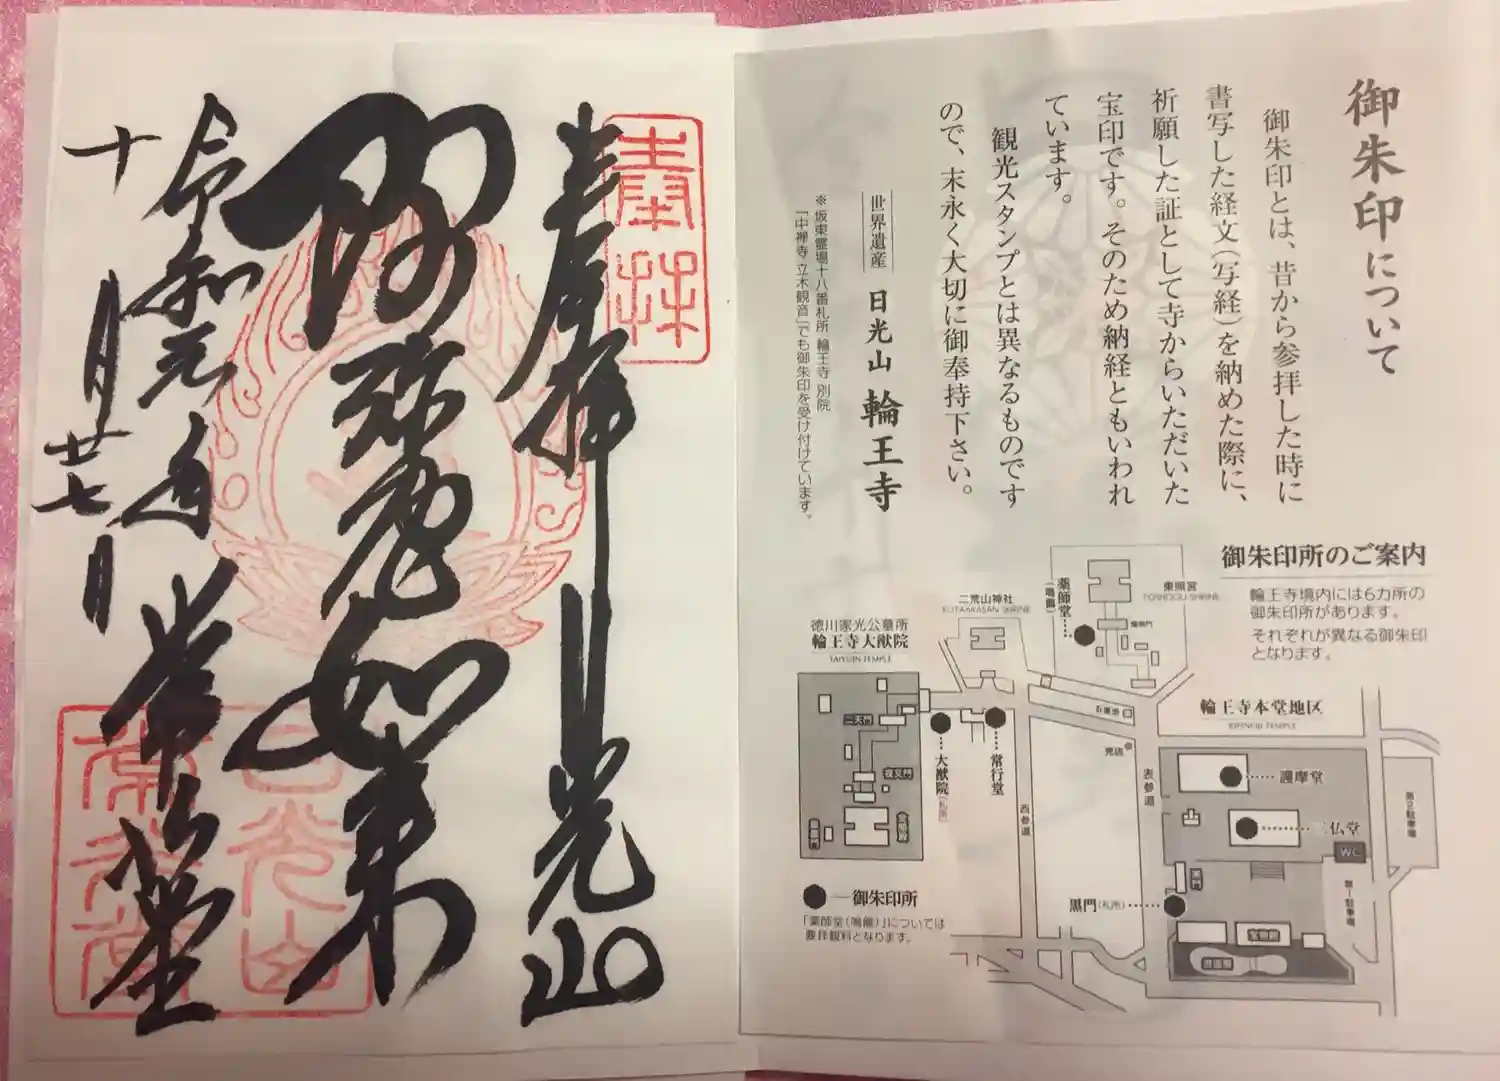 御朱印について
御朱印とは、昔から参拝した時に
書写した経文(写経)を納めた際に、
祈願した証として寺からいただいた
宝印です。そのため納経ともいわれ
ています。
観光スタンプとは異なるものです
ので、末永く大切に御奉持下さい。
世界遺産 日光山 輪王寺
※坂東霊場十八番札所 輪王寺 別院
「中禅寺 立木観音」でも御朱印を受け付けています。
御朱印所のご案内
輪王寺境内には6カ所の
御朱印所があります。
それぞれが異なる御朱印
となります。
東照宮
TOSHOGU SHRINE
薬師堂
(鳴龍)
陽明門
二荒山神社
FUTARASAN SHRINE
徳川家光公墓所
輪王寺大猷院
TAIYUIN TEMPLE
二天門
夜叉門
大猷院(札所)
常行堂
西参道
表参道
輪王寺本堂地区
RINNOJI TEMPLE
護摩堂
三仏堂
WC
黒門(札所)
宝物殿
逍遥園
第2駐車場
第一駐車場
御朱印所
「薬師堂(鳴龍)」については
要拝観料となります。
奉拝
奉拝 日光山
阿弥陀如来
令和元年
十月廿七日
常行堂
日光山
常行堂